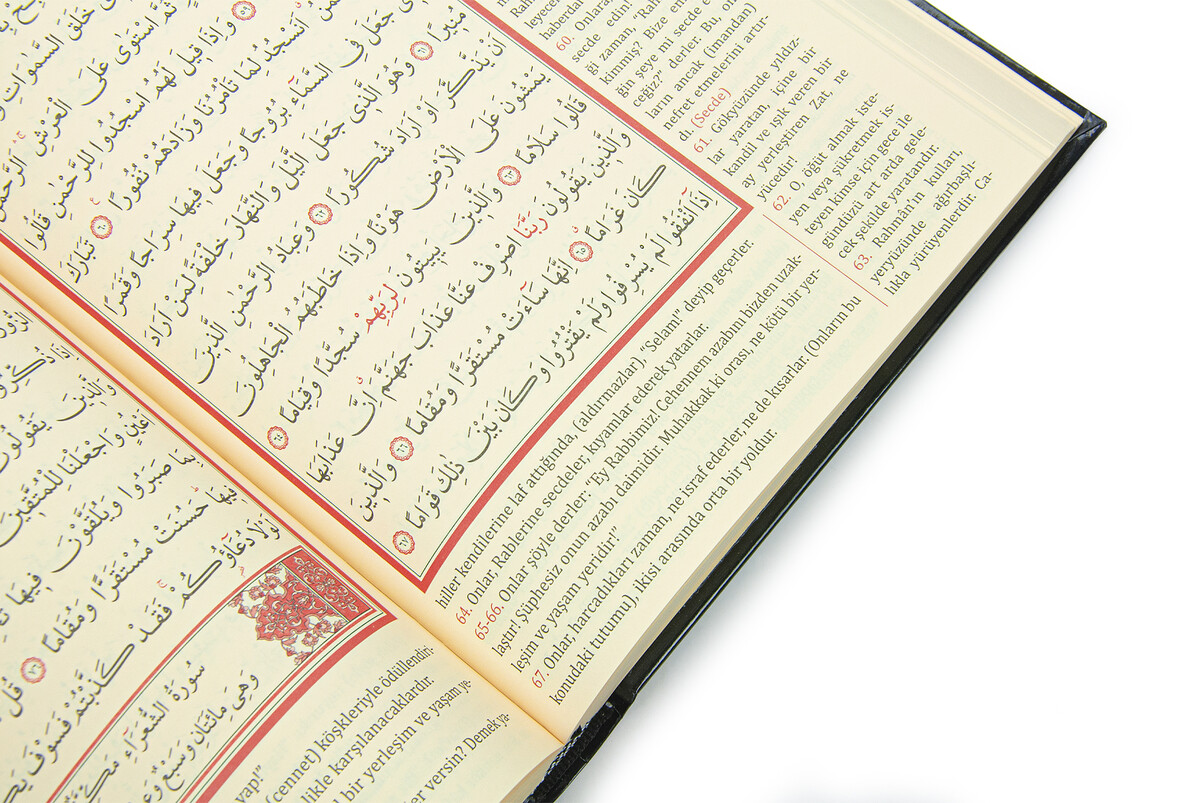 ثُمَّ اسْتَوٰى عَلَى الْعَرْشِ
﴿٥٩﴾ وَاِذَا قٖيلَ لَهُمُ اسْجُدُوا لِلرَّحْمٰنِ قَالُوا
اَنَسْجُدُ لِمَا تَأْمُرُنَا وَزَادَهُمْ نُفُورًا ﴿٦٠﴾ تَبَارَكَ
جَعَلَ فِى السَّمَٓاءِ بُرُوجًا وَجَعَلَ فٖيهَا سِرَاجًا وَقَمَرًا
مُنٖيرًا ﴿٦١﴾ وَهُوَ الَّذٖى جَعَلَ الَّيْلَ وَالنَّهَارَ خِلْفَةً لِمَنْ اَرَادَ
اَنْ يَذَّكَّرَ اَوْ اَرَادَ شُكُورًا ﴿٦٢﴾ وَعِبَادُ الرَّحْمٰنِ الَّذٖينَ
يَمْشُونَ عَلَى الْاَرْضِ هَوْنًا وَاِذَا خَاطَبَهُمُ الْجَاهِلُونَ
قَالُوا سَلَامًا ﴿٦٣﴾ وَالَّذٖينَ يَبٖيتُونَ لِرَبِّهِمْ سُجَّدًا وَقِيَامًا ﴿٦٤﴾
وَالَّذٖينَ يَقُولُونَ رَبَّنَا اصْرِفْ عَنَّا عَذَابَ جَهَنَّمَ اِنَّ عَذَابَهَا
كَانَ غَرَامًا ﴿٦٥﴾ اِنَّهَا سَٓاءَتْ مُسْتَقَرًّا وَمُقَامًا ﴿٦٦﴾ وَالَّذٖينَ
اِذَٓا اَنْفَقُوا لَمْ يُسْرِفُوا وَلَمْ يَقْتُرُوا وَكَانَ بَيْنَ ذٰلِكَ قَوَامًا ﴿٦٧﴾
haberdar
60. Onlara,
secde edin!
ği zaman, "Rah
kimmiş? Bize em
ğin şeye mi secde e
ceğiz?" derler. Bu, on
ların ancak (imandan)
nefret etmelerini artır-
dı. (Secde)
61. Gökyüzünde yıldız-
lar yaratan, içine bir
kandil ve ışık veren bir
ay yerleştiren Zat, ne
yücedir!
62. O, öğüt almak iste-
yen veya şükretmek is-
teyen kimse için gece ile
gündüzü art arda gele-
cek şekilde yaratandır.
63. Rahmân'ın kulları,
yeryüzünde ağırbaşlı-
lıkla yürüyenlerdir. Ca-
hiller kendilerine laf attığında, (aldırmazlar), "Selam!" deyip geçerler.
64. Onlar, Rablerine secdeler, kıyamlar ederek yatarlar.
65-66. Onlar şöyle derler: "Ey Rabbimiz! Cehennem azabını bizden uzak-
laştır! Şüphesiz onun azabı daimidir. Muhakkak ki orası, ne kötü bir yer-
leşim ve yaşam yeridir!"
67. Onlar, harcadıkları zaman, ne israf ederler, ne de kısarlar. (Onların bu
konudaki tutumu), ikisi arasında orta bir yoldur.
وَالَّذٖينَ يَقُولُونَ
وَاجْعَلْنَا لِلْمُتَّقٖينَ
بِمَا صَبَرُوا وَيُلَقَّوْنَ فٖيهَا
فٖيهَا حَسُنَتْ مُسْتَقَرًّا وَمُقَامًا ﴿٧٦﴾ قُلْ
لَوْلَا دُعَٓاؤُكُمْ فَقَدْ كَذَّبْتُمْ فَسَوْفَ
سُورَةُ الشُّعَرَٓاءِ
وَهِىَ مِائَتَانِ وَسَبْعٌ
(cennet) köşkleriyle ödüllendiri-
likle karşılanacaklardır.
bir yerleşim ve yaşam ye-
er versin? Demek ya-
vap!"